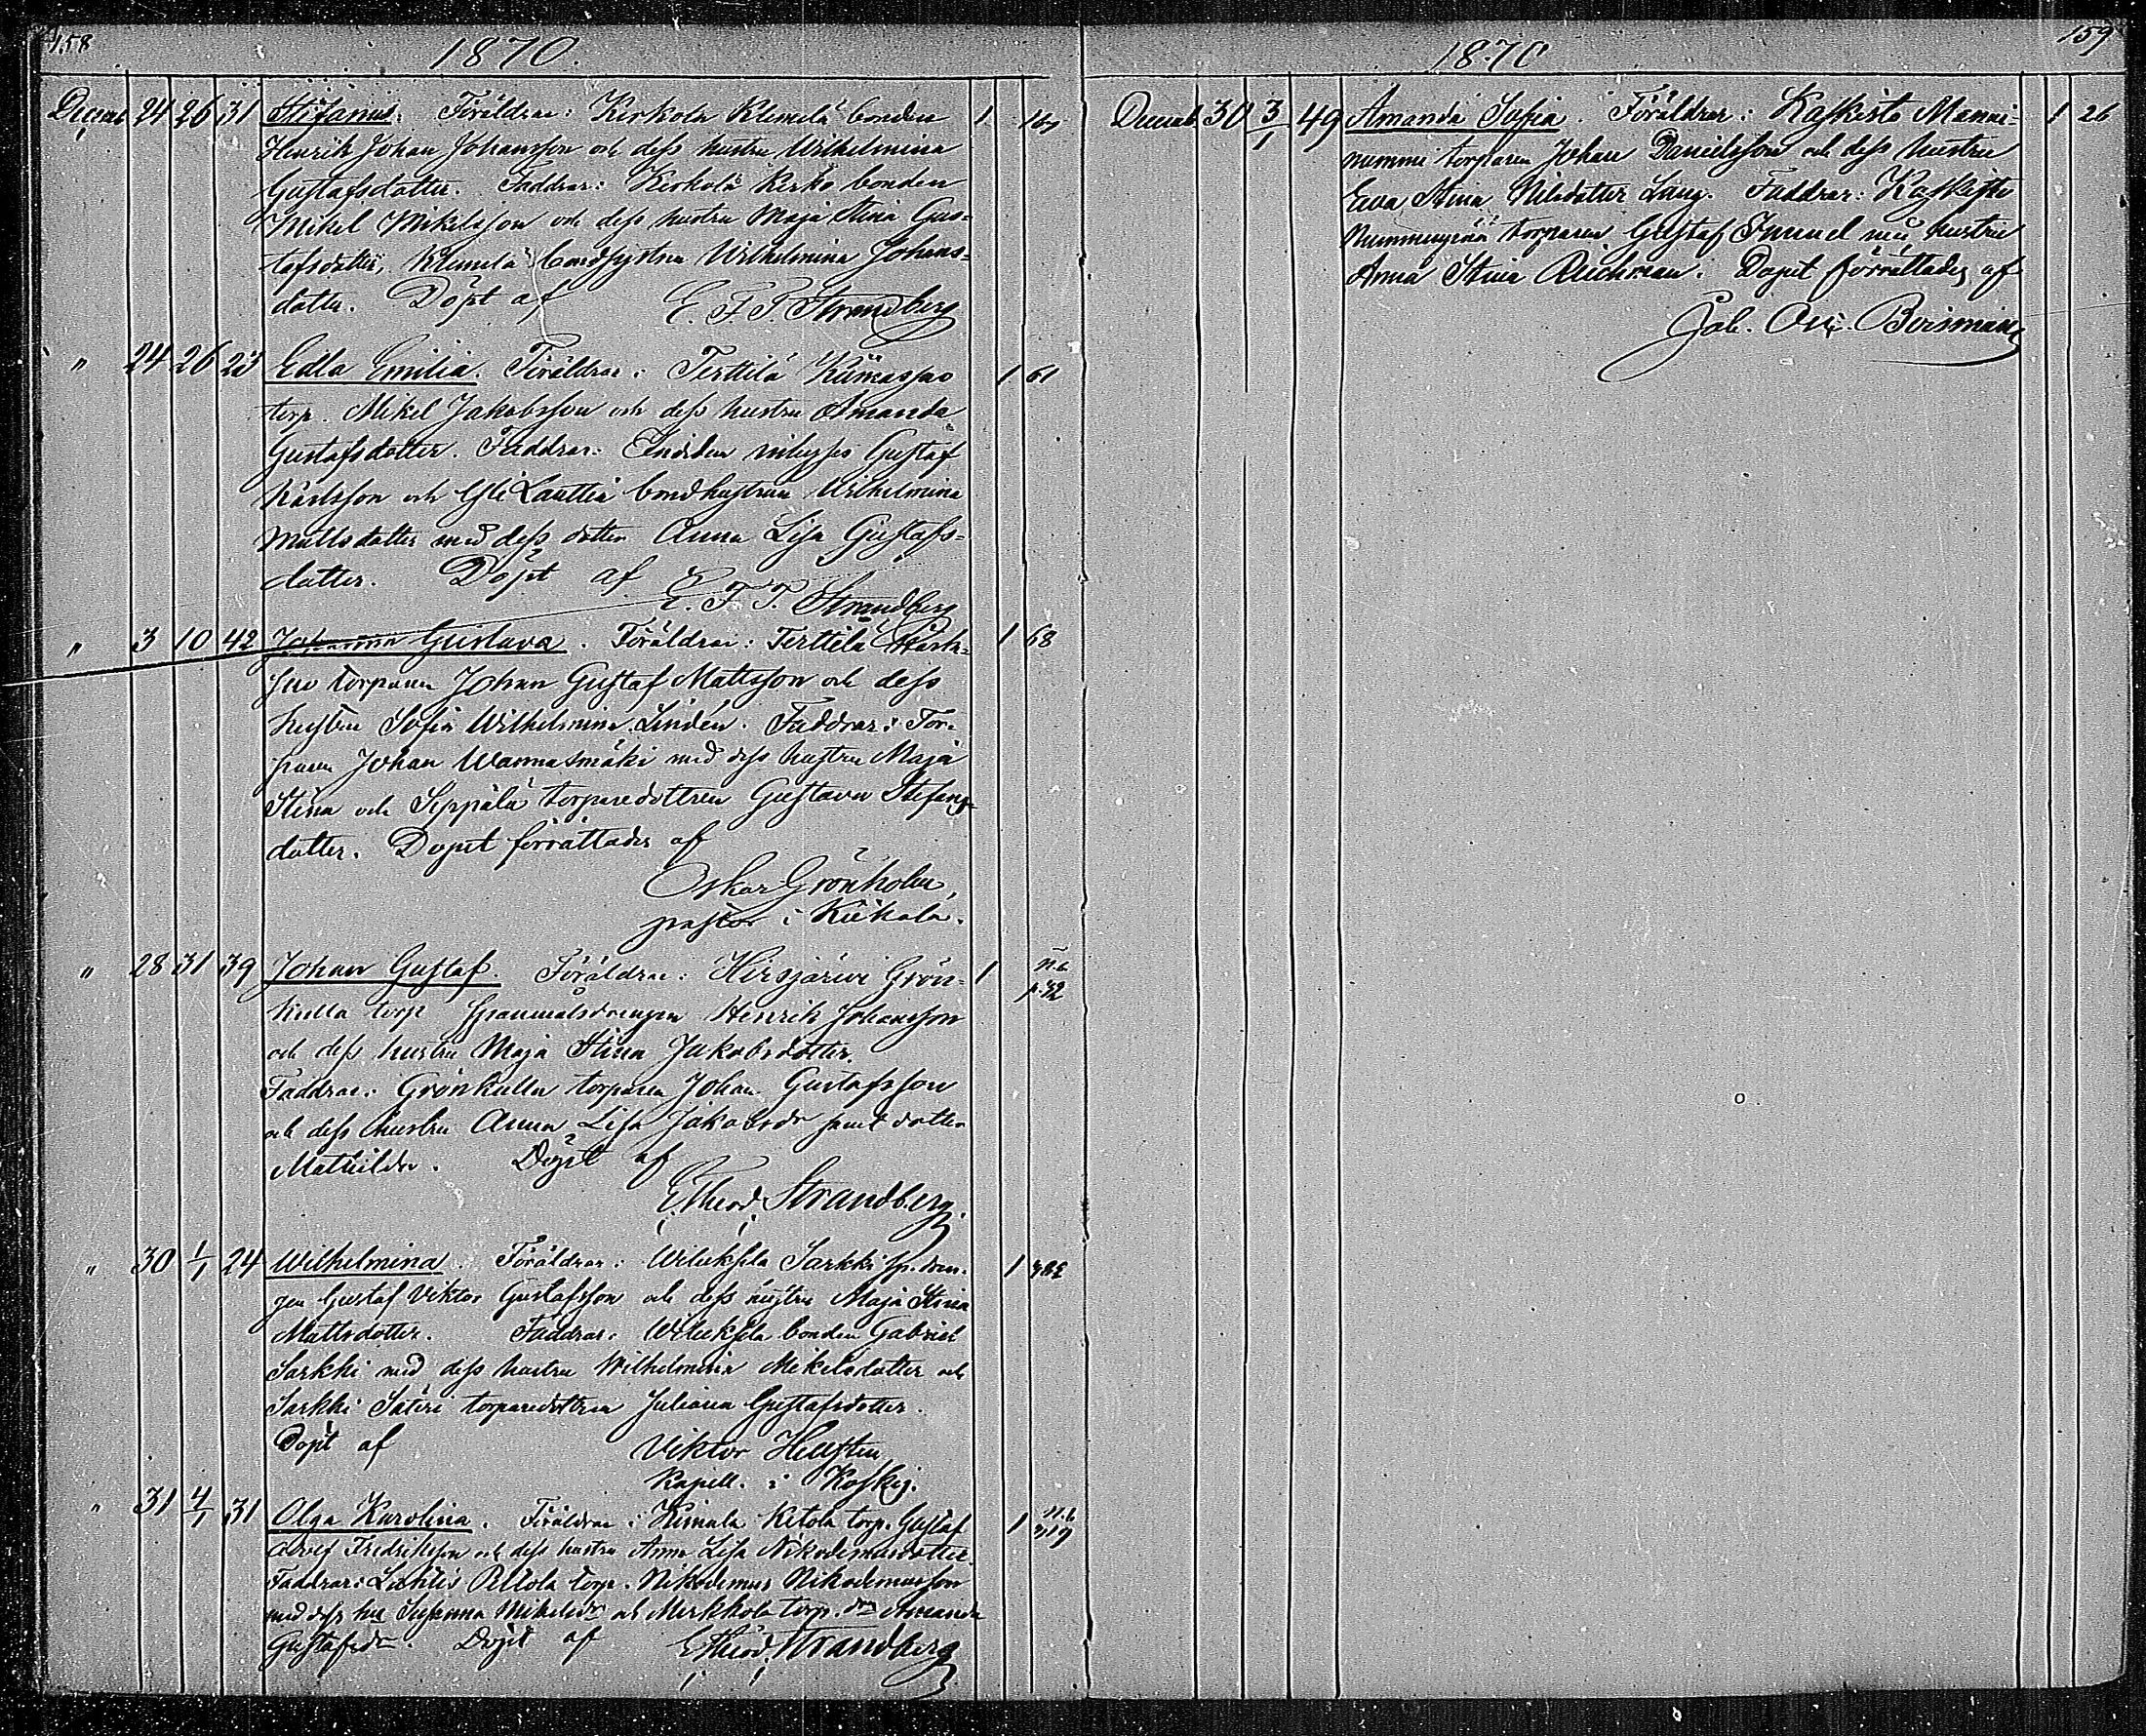 158
1870.
Decemb 24 26 31 Stefanus. Föräldrar: Kerkola Klemelä bonden 1
Henrik Johan Johansson och dess hustru Wilhelmina
Gustafsdotter. Faddrar: Kerkola Kerko bonden
Mikel Mikelsson och dess hustru Maja Stina Gus-
tafsdotter, Klemelä bondhustru Wilhelmina Johans-
dotter. Döpt af E. F. T. Strandberg
" 24 26 23 Edla Emilia. Föräldrar: Terttilä Kiimassuo 1 61
torp. Mikel Jakobsson och dess hustru Amanda
Gustafsdotter. Faddrar: Gustaf
Karlsson och Lauttia bondhustrun Wilhelmina
Mattsdotter med dess dotter Anna Lisa Gustafs-
dotter. Döpt af
E. F. T. Strandberg
" 3 10 42 Johanna Gustava. Föräldrar: Terttilä
suo torparen Johan Gustaf Mattsson och dess
hustru Sofia Wilhelmina Lindén. Faddrar: Tor-
paren Johan Wannasmäki med dess hustru Maja
Stina och Seppälä torparedottren Gustava Stefans-
dotter. Dopet förrättades af
Oskar Grönholm,
pastor i Kiikala.
" 28 31 39 Johan Gustaf. Föräldrar: Hirsjärvi Grön- 1 n.b.
kulla torp spanmålsdrengen Henrik Johansson
och dess hustru Maja Stina Jakobsdotter.
Faddrar: Grönkulla torparen Johan Gustafsson
och dess hustru Anna Lisa Jakobsdr samt dotter
Mathilda. Döpt af
E. Theod. Strandberg.
" 30 1/1 24 Wilhelmina. Föräldrar: Wiluksela Sarkki sp. dren- 1
gen Gustaf Viktor Gustafsson och dess hustru Maja Stina
Mattsdotter. Faddrar: Wiluksela bonden Gabriel
Sarkki med dess hustru Wilhelmina Mikelsdotter och
Sarkki Säteri torparedottren Juliana Gustafsdotter.
Döpt af Viktor Hellsten
Kapell. i Koskis.
" 31 4/1 31 Olga Karolina. Föräldrar: Kimala Ketola torp. Gustaf 1 n.b.
Fredriksson och dess hustru Anna Lisa Nikodemusdotter. 319
Faddrar: Peltola torp. Nikodemus Nikodemusson
med dess hu Susanna Mikelsdr och Merkkola torp. dr Amanda
Gustafsdr. Döpt af E Theod. Strandberg
159
1870
Decemb. 30 3/1 49 Amanda Sofia. Föräldrar: Kaskisto Manni- 1 26
nummi torparen Johan Danielsson och dess hustru
Eva Stina Nilsdotter Lang. Faddrar: Kaskisto
torparen Gustaf Immel med hustru
Anna Stina Reichman. Dopet förrättades af
Joh. Osc. Boisman